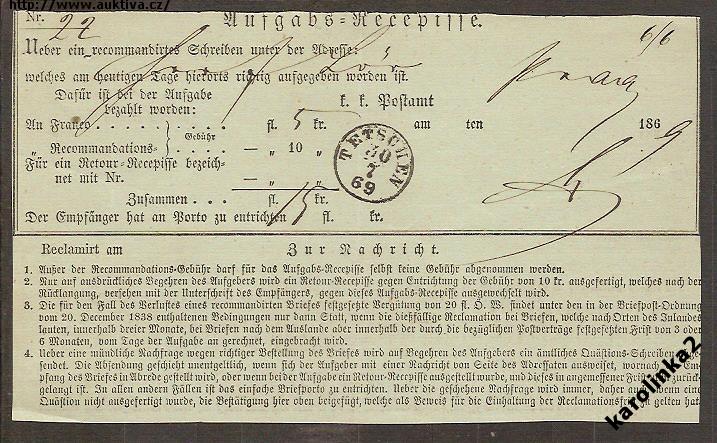 http://www.auktiva.cz/
Nr. 27
Aufgabs-Recepisse.
6/6
Ueber ein recommandirtes Schreiben unter der Adresse:
welches am heutigen Tage hierorts richtig aufgegeben worden ist.
Dafür ist bei der Aufgabe
bezahlt worden:
k. k. Postamt
An Franco . . . . . . . . . fl. 5 kr. am ten 1869
„ Recommandations- Gebühr . . . . — „ 10 „
Für ein Retour-Recepisse bezeich-
net mit Nr. — „ „
Zusammen . . . fl. 15 kr.
Der Empfänger hat an Porto zu entrichten fl. kr.
TETSCHEN
30
7
69
Reclamirt am
Zur Nachricht.
1. Außer der Recommandations-Gebühr darf für das Aufgabs-Recepisse selbst keine Gebühr abgenommen werden.
2. Nur auf ausdrückliches Begehren des Aufgebers wird ein Retour-Recepisse gegen Entrichtung der Gebühr von 10 kr. ausgefertigt, welches nach der
Rücklangung, versehen mit der Unterschrift des Empfängers, gegen dieses Aufgabs-Recepisse ausgewechselt wird.
3. Die für den Fall des Verlustes eines recommandirten Briefes festgesetzte Vergütung von 20 fl. O. W. findet unter den in der Briefpost-Ordnung
vom 20. December 1838 enthaltenen Bedingungen nur dann Statt, wenn die dießfällige Reclamation bei Briefen, welche nach Orten des Inlandes
lauten, innerhalb dreier Monate, bei Briefen nach dem Auslande aber innerhalb der durch die bezüglichen Postverträge festgesetzten Frist von 3 oder
6 Monaten, vom Tage der Aufgabe an gerechnet, eingebracht wird.
4. Ueber eine mündliche Nachfrage wegen richtiger Bestellung des Briefes wird auf Begehren des Aufgebers ein ämtliches Quästions-Schreiben abge-
sendet. Die Absendung geschieht unentgeltlich, wenn sich der Aufgeber mit einer Nachricht von Seite des Adressaten ausweiset, wornach der Em-
pfang des Briefes in Abrede gestellt wird, oder wenn bei der Aufgabe ein Retour-Recepisse ausgestellt wurde, und dieses in angemessener Frist nicht zurück-
gelangt ist. In allen andern Fällen ist das einfache Briefporto zu entrichten. Ueber die geschehene Nachfrage wird immer, daher auch wenn eine
Quästion nicht ausgefertigt wurde, die Bestätigung hier oben beigefügt, welche als Beweis für die Einhaltung der Reclamationsfrist zu gelten hat.
karolinka2